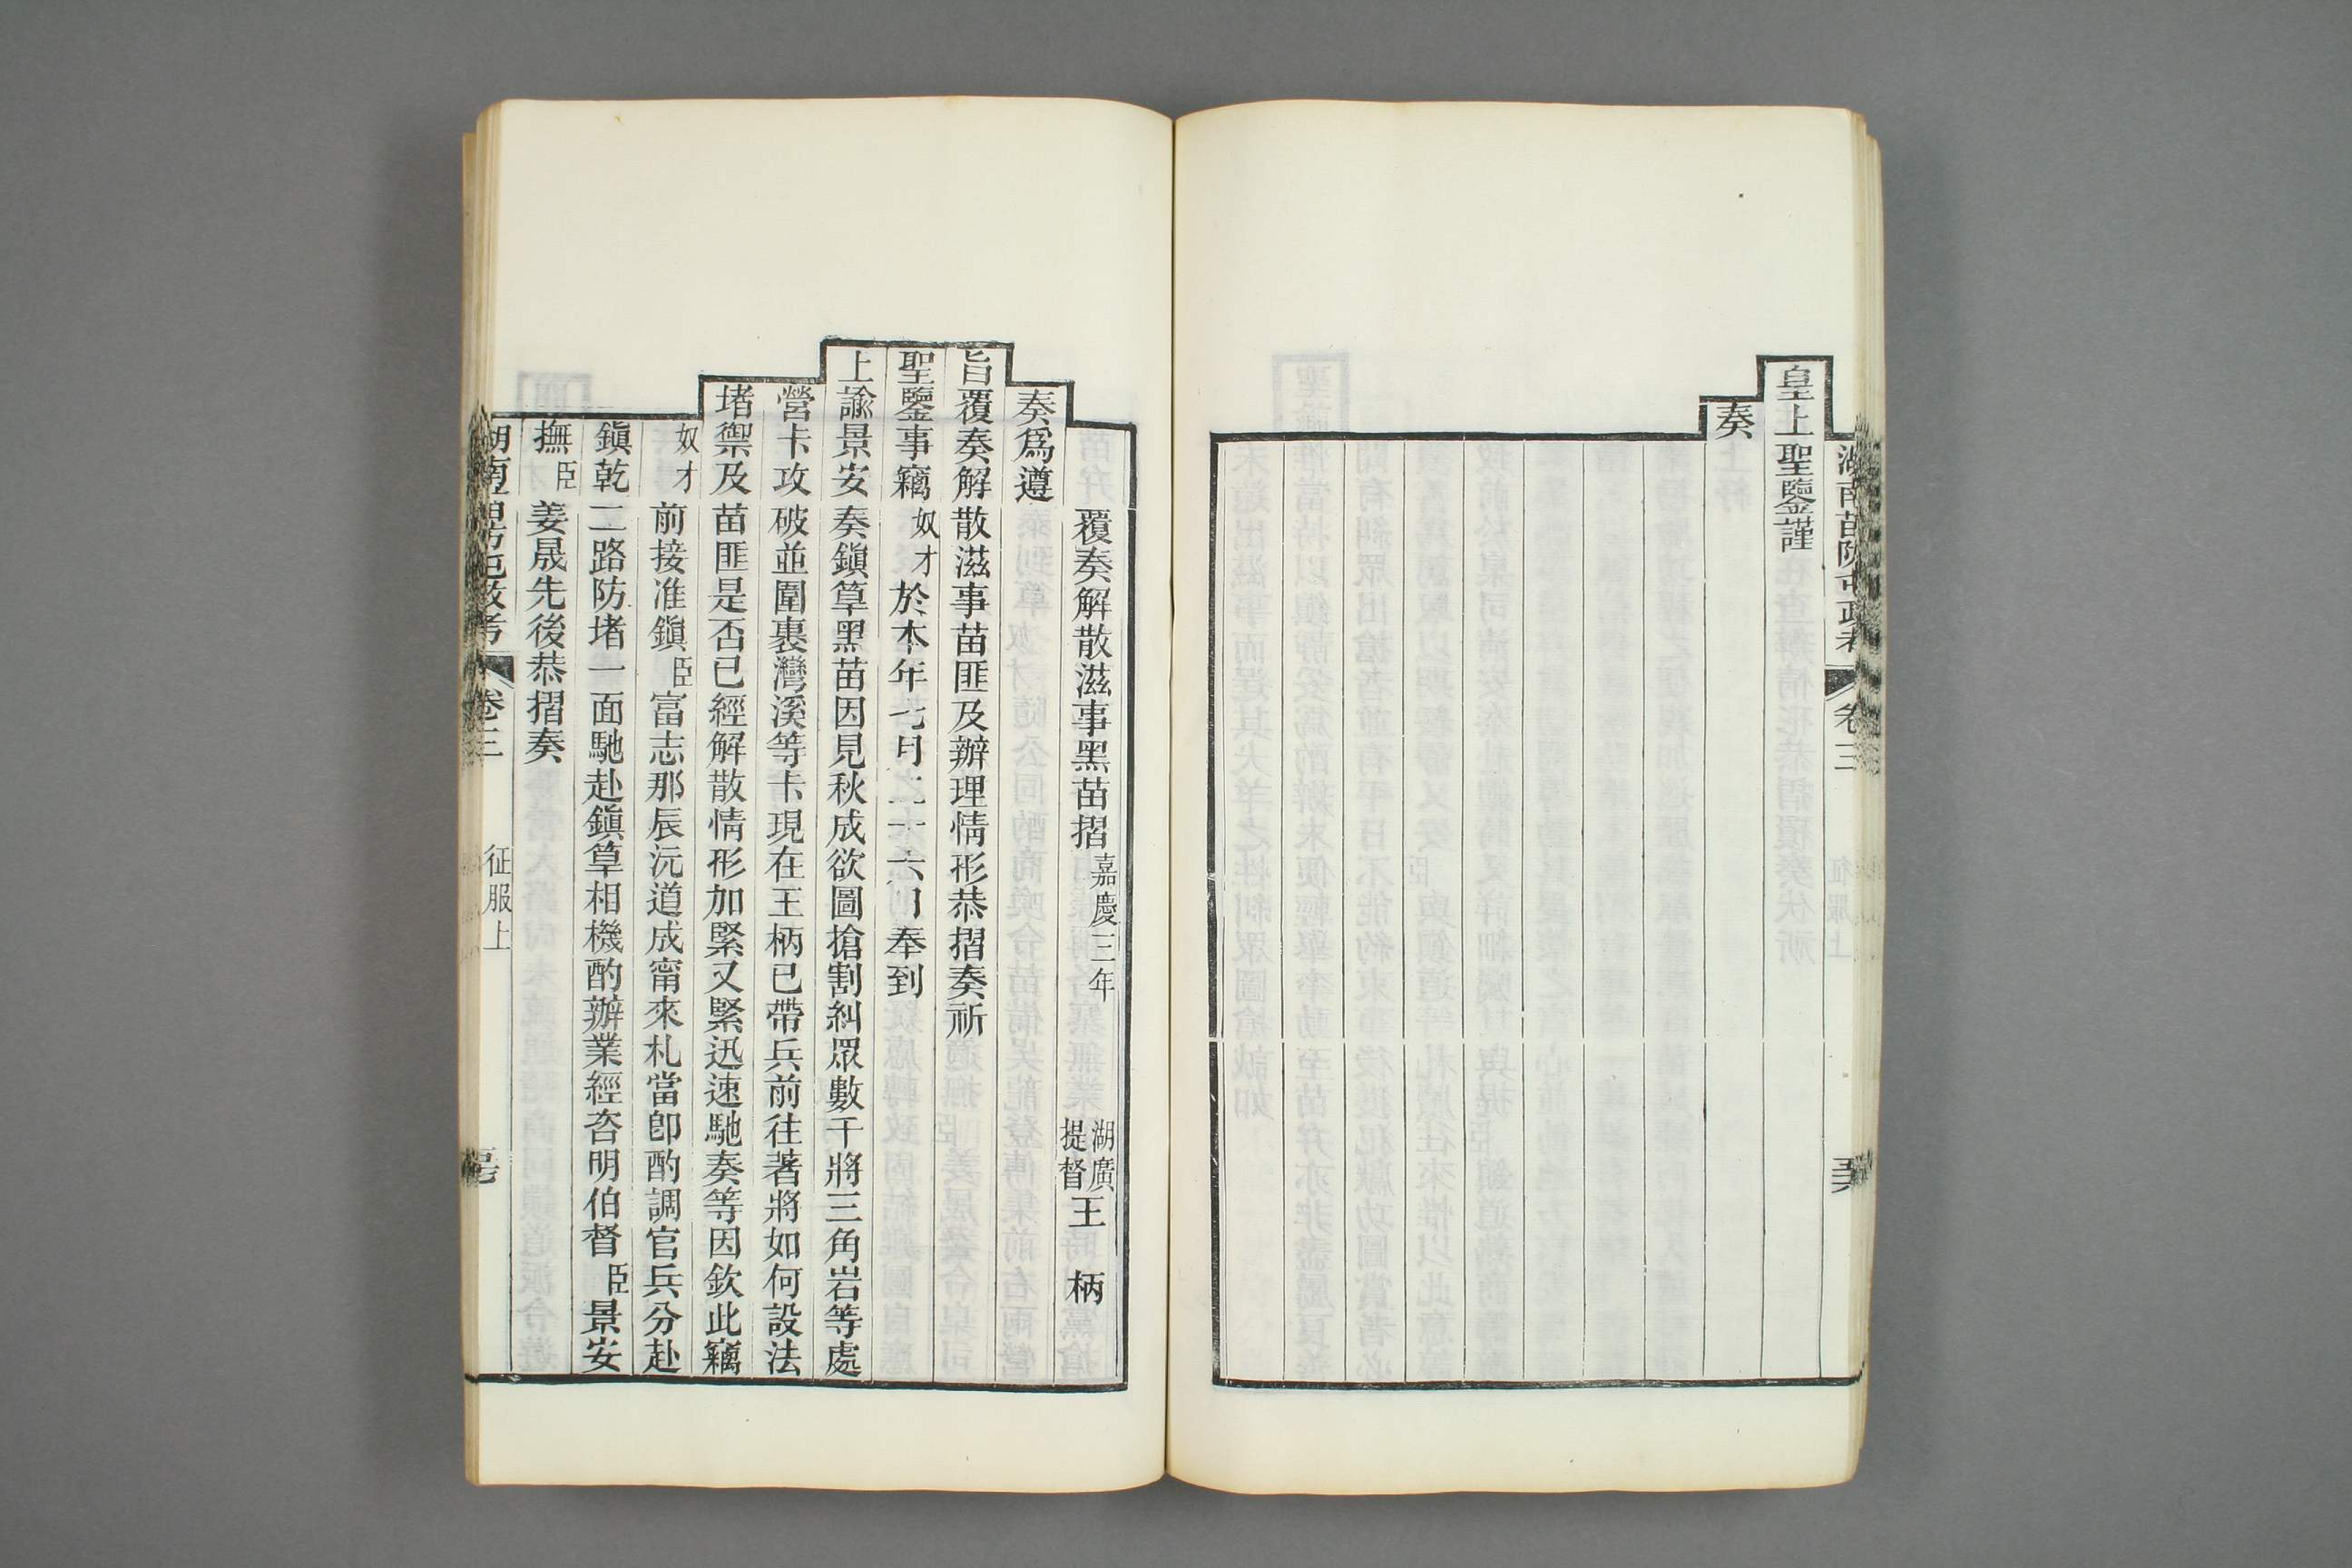 湖南苗防屯政考 卷三
皇上聖鑒謹
奏
覆奏解散滋事黑苗摺 嘉慶三年 湖廣提督王 柄
奏爲遵
旨覆奏解散滋事苗匪及辦理情形恭摺奏祈
聖鑒事竊奴才於本年七月二十六日奉到
上諭景安奏鎭筸黑苗因見秋成欲圖搶割糾眾數千將三角岩等處
營卡攻破並圍裹灣溪等卡現在王柄已帶兵前往著將如何設法
堵禦及苗匪是否已經解散情形加緊又緊迅速馳奏等因欽此竊
奴才前接准鎭臣富志那辰沅道成甯來札當卽酌調官兵分赴
鎭乾二路防堵一面馳赴鎭筸相機酌辦業經咨明伯督臣景安
撫臣姜晟先後恭摺奏
湖南苗防屯政考 卷三 征服上